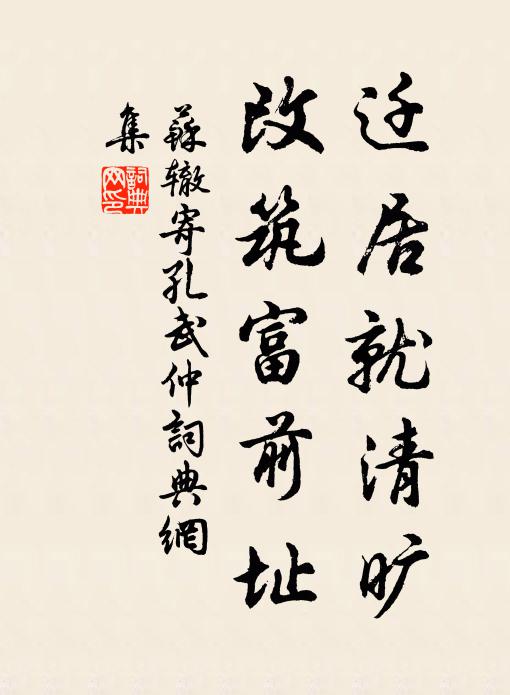 迁居就清旷
改筑富前址
蘇辙寄孔武仲詞典網
集
詞典网印